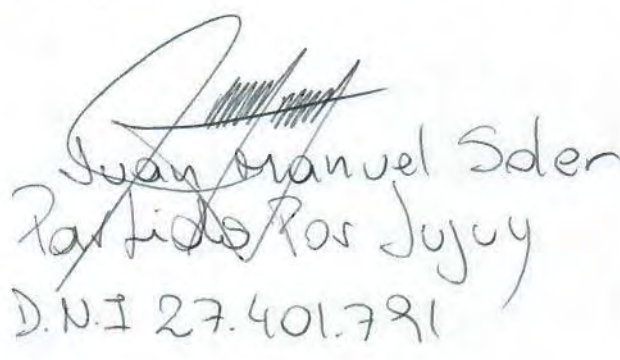 Juan Manuel Soler
Partido Por Jujuy
D.N.I 27.401.791